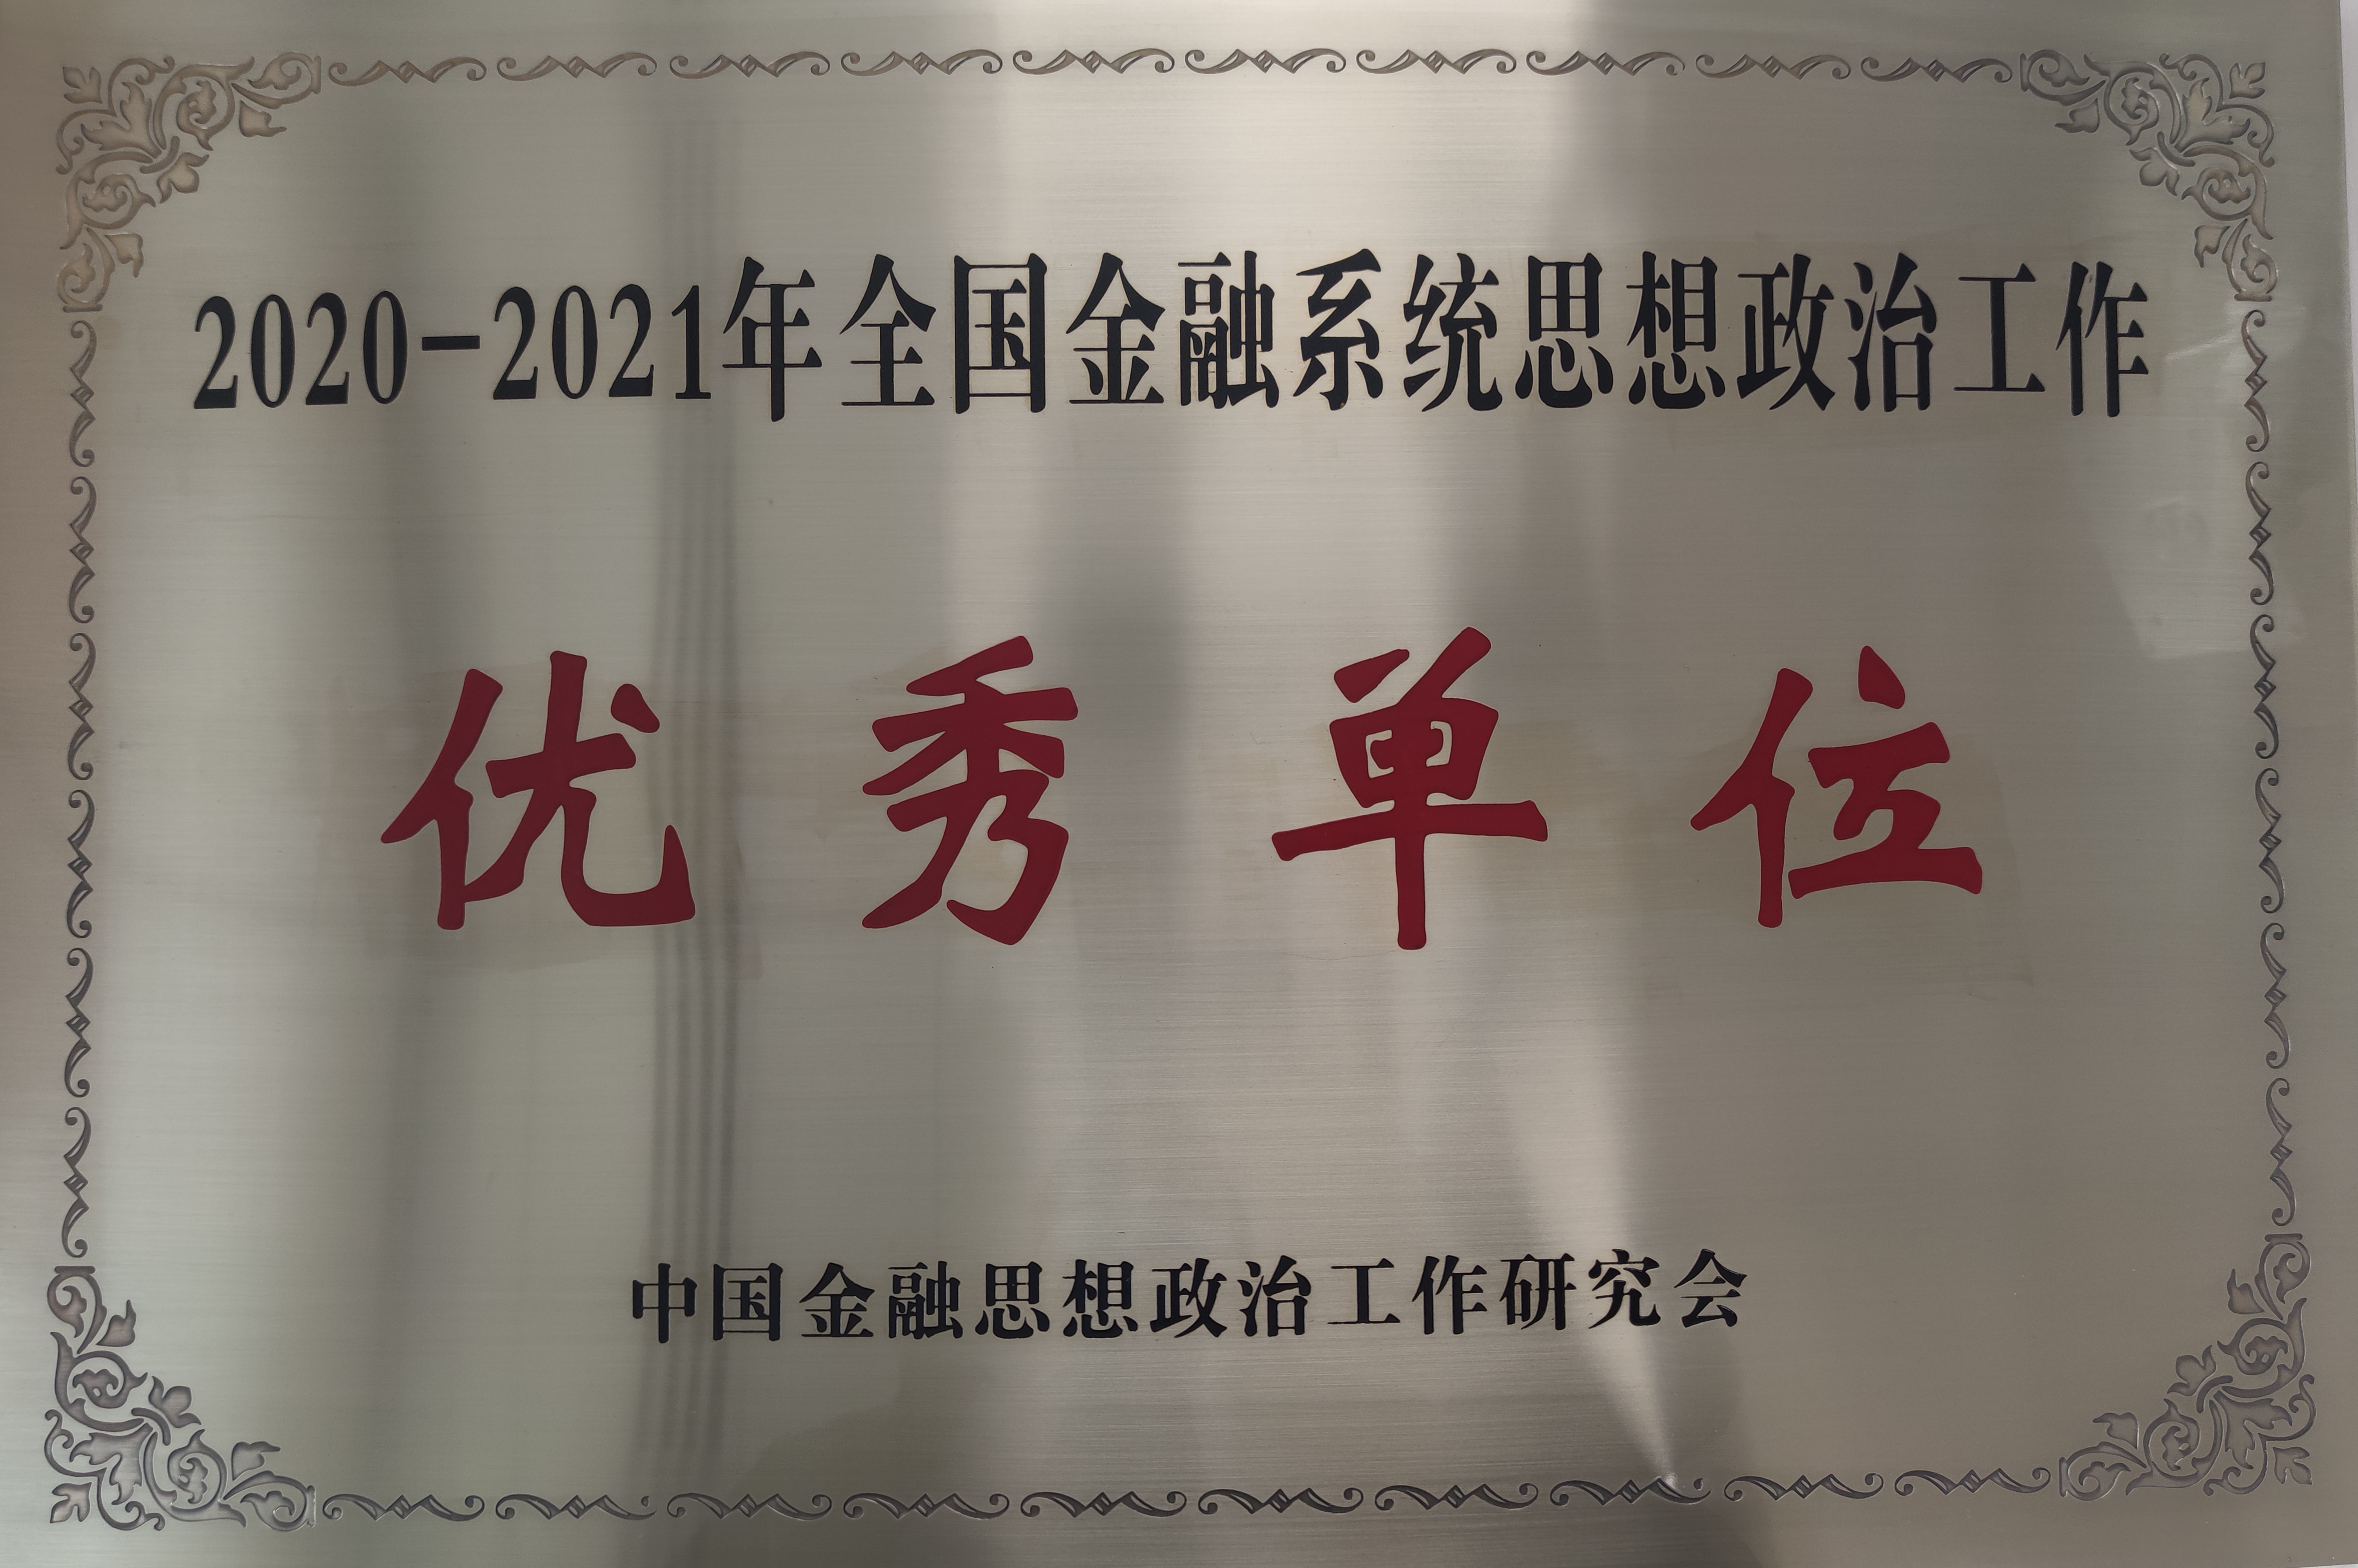 2020-2021年全国金融系统思想政治工作
优秀单位
中国金融思想政治工作研究会